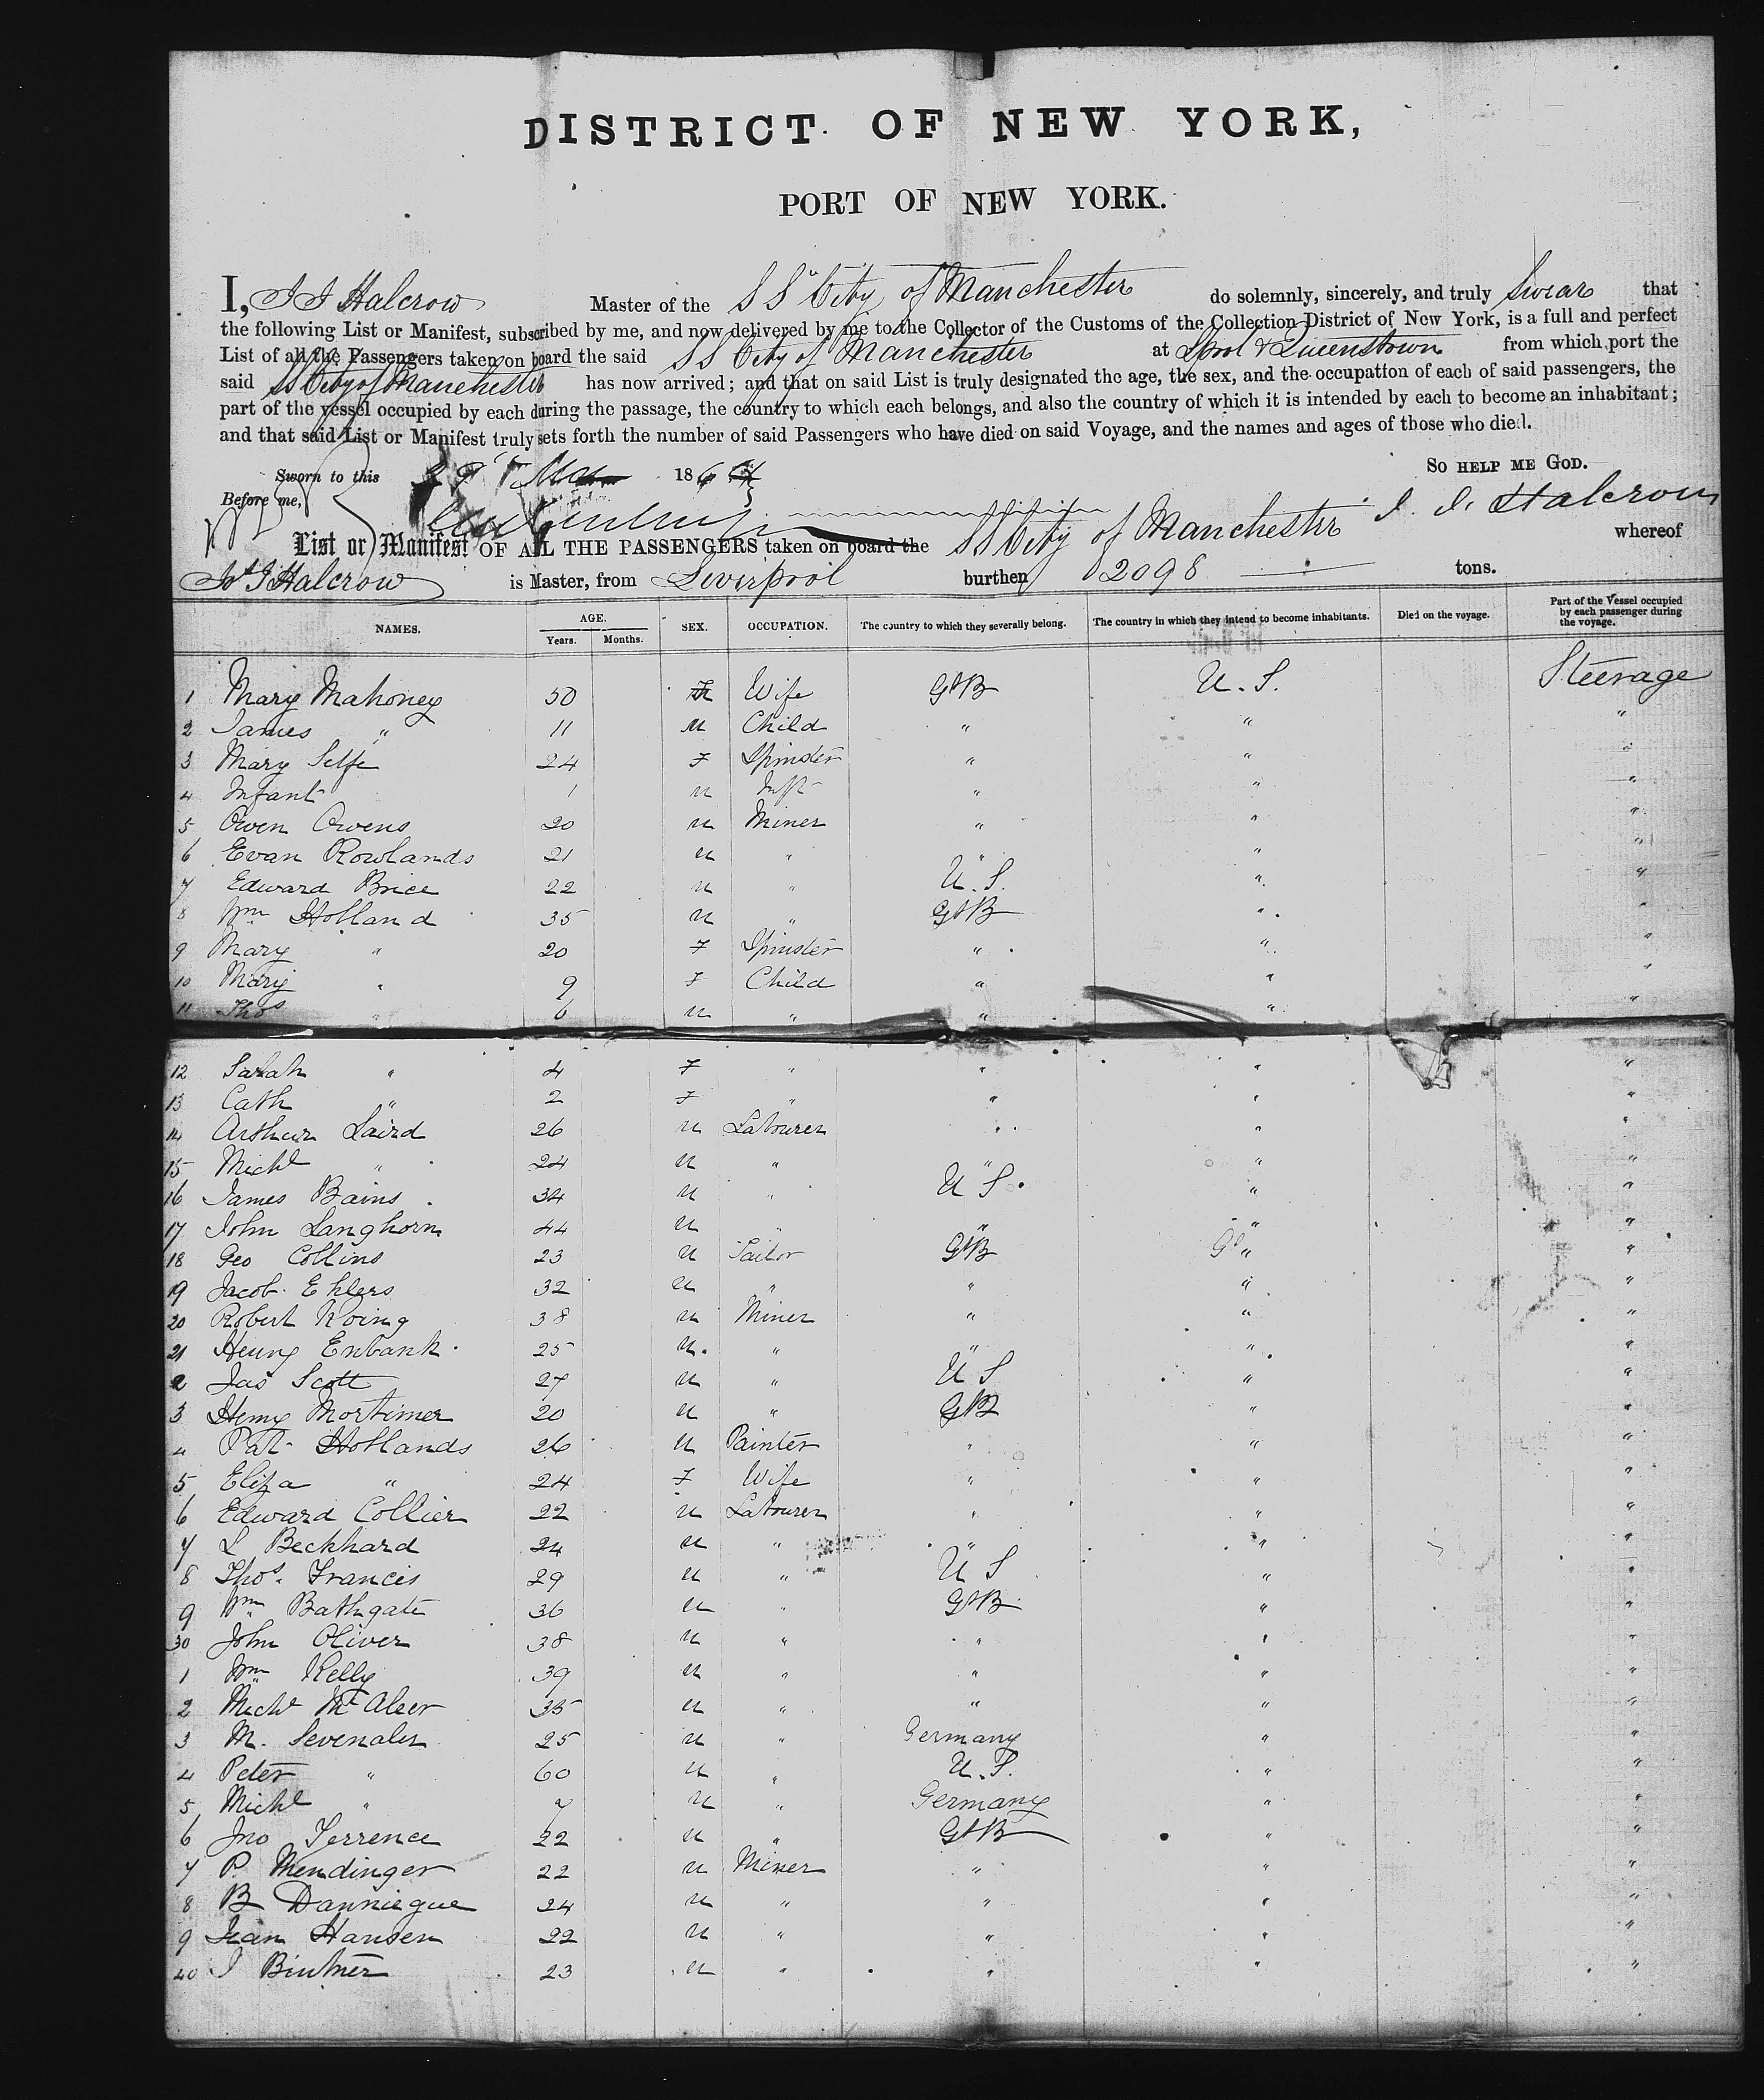 DISTRICT OF NEW YORK,
PORT OF NEW YORK.
I, J J Halcrow Master of the SS City of Manchester do solemnly, sincerely, and truly Swear that
the following List or Manifest, subscribed by me, and now delivered by me to the Collector of the Customs of the Collection District of New York, is a full and perfect
List of all the Passengers taken on board the said SS City of Manchester at Lpool & Queenstown from which port the
said SS City of Manchester has now arrived; and that on said List is truly designated the age, the sex, and the occupation of each of said passengers, the
part of the vessel occupied by each during the passage, the country to which each belongs, and also the country of which it is intended by each to become an inhabitant;
and that said List or Manifest truly sets forth the number of said Passengers who have died on said Voyage, and the names and ages of those who died.
Sworn to this 186 So HELP ME GOD.
Before me, J. J. Halcrow
List or Manifest OF ALL THE PASSENGERS taken on board the SS City of Manchester whereof
Jo J Halcrow is Master, from Liverpool burthen 2098 tons.
NAMES. AGE. Years. Months. SEX. OCCUPATION. The country to which they severally belong. The country in which they intend to become inhabitants. Died on the voyage. Part of the Vessel occupied by each passenger during the voyage.
1 Mary Mahoney 50 F Wife GtB U.S. Steerage
2 James " 11 M Child " " "
3 Mary Selfe 24 F Spinster " " "
4 Infant 1 M Inft " " "
5 Owen Owens 20 M Miner " " "
6 Evan Rowlands 21 M " " " "
7 Edward Brice 22 M " U.S. " "
8 Wm Holland 35 M " GtB " "
9 Mary " 20 F Spinster " " "
10 Mary " 9 F Child " " "
11 Thos " 6 M " " " "
12 Sarah " 4 F " " " "
13 Cath " 2 F " " " "
14 Arthur Laird 26 M Labourer " " "
15 Michl " 24 M " " " "
16 James Bains 34 M " U S. " "
17 John Langhorn 44 M " " " "
18 Geo Collins 23 M Sailor GtB " "
19 Jacob Ehlers 32 M " " " "
20 Robert Koing 38 M Miner " " "
21 Henry Enbank 25 M. " " " "
2 Jas Scott 27 M " U S " "
3 Henry Mortimer 20 M " GtB " "
4 Pat Hollands 26 M Painter " " "
5 Eliza " 24 F Wife " " "
6 Edward Collier 22 M Labourer " " "
7 L Beckhard 24 M " " " "
8 Thos. Francis 29 M " U S " "
9 Wm Bathgate 36 M " GtB " "
30 John Oliver 38 M " " " "
1 Wm Kelly 39 M " " " "
2 Michl McAleer 35 M " " " "
3 M. Sevenaler 25 M " Germany " "
4 Peter " 60 M " U.S. " "
5 Michl " 7 M " Germany " "
6 Jno Terrence 22 M " GtB " "
7 P. Mendinger 22 M Miner " " "
8 B Danniegue 24 M " " " "
9 Jean Hansen 22 M " " " "
40 J Bintner 23 M " " " "